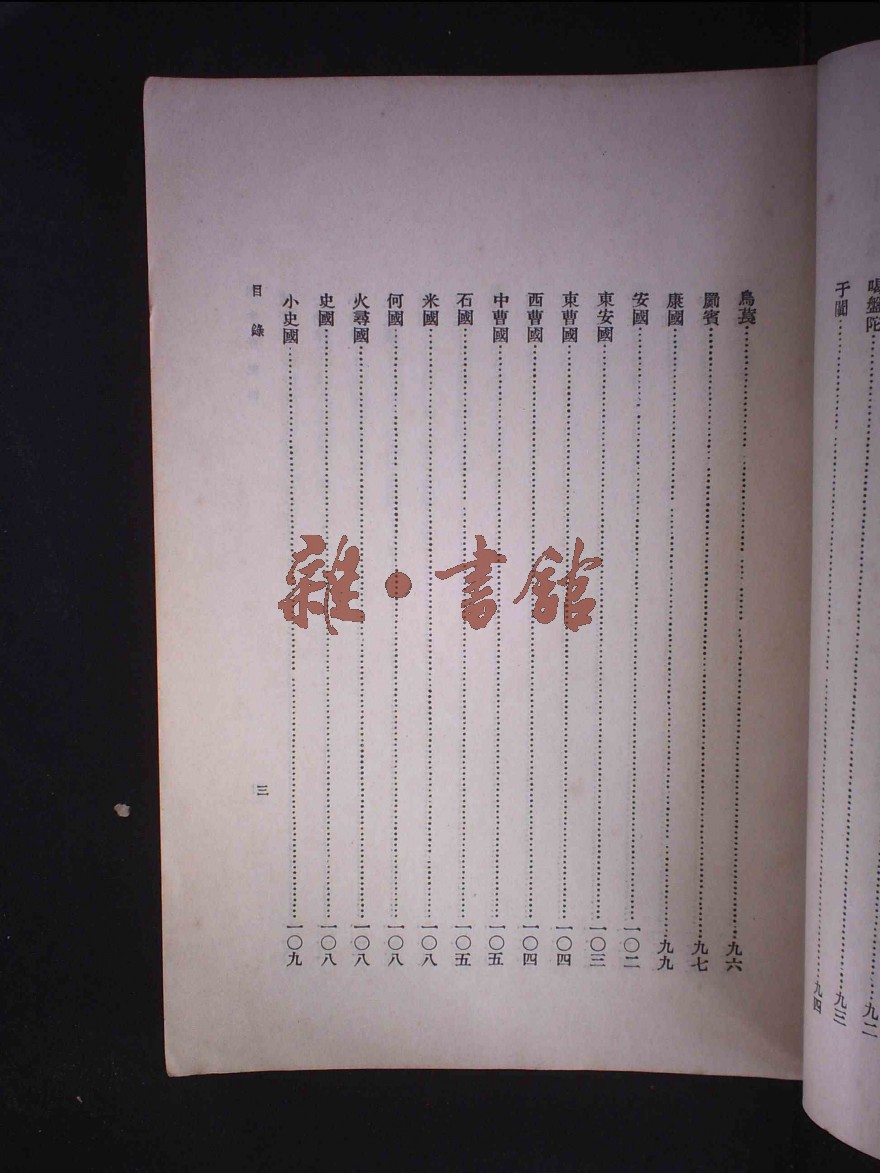 喝盤陀……九二
于闐……九三
……九四
烏萇……九六
罽賓……九七
康國……九九
安國……一〇二
東安國……一〇三
東曹國……一〇四
西曹國……一〇四
中曹國……一〇五
石國……一〇五
米國……一〇八
何國……一〇八
火尋國……一〇八
史國……一〇八
小史國……一〇九
目錄
三
雜·書館